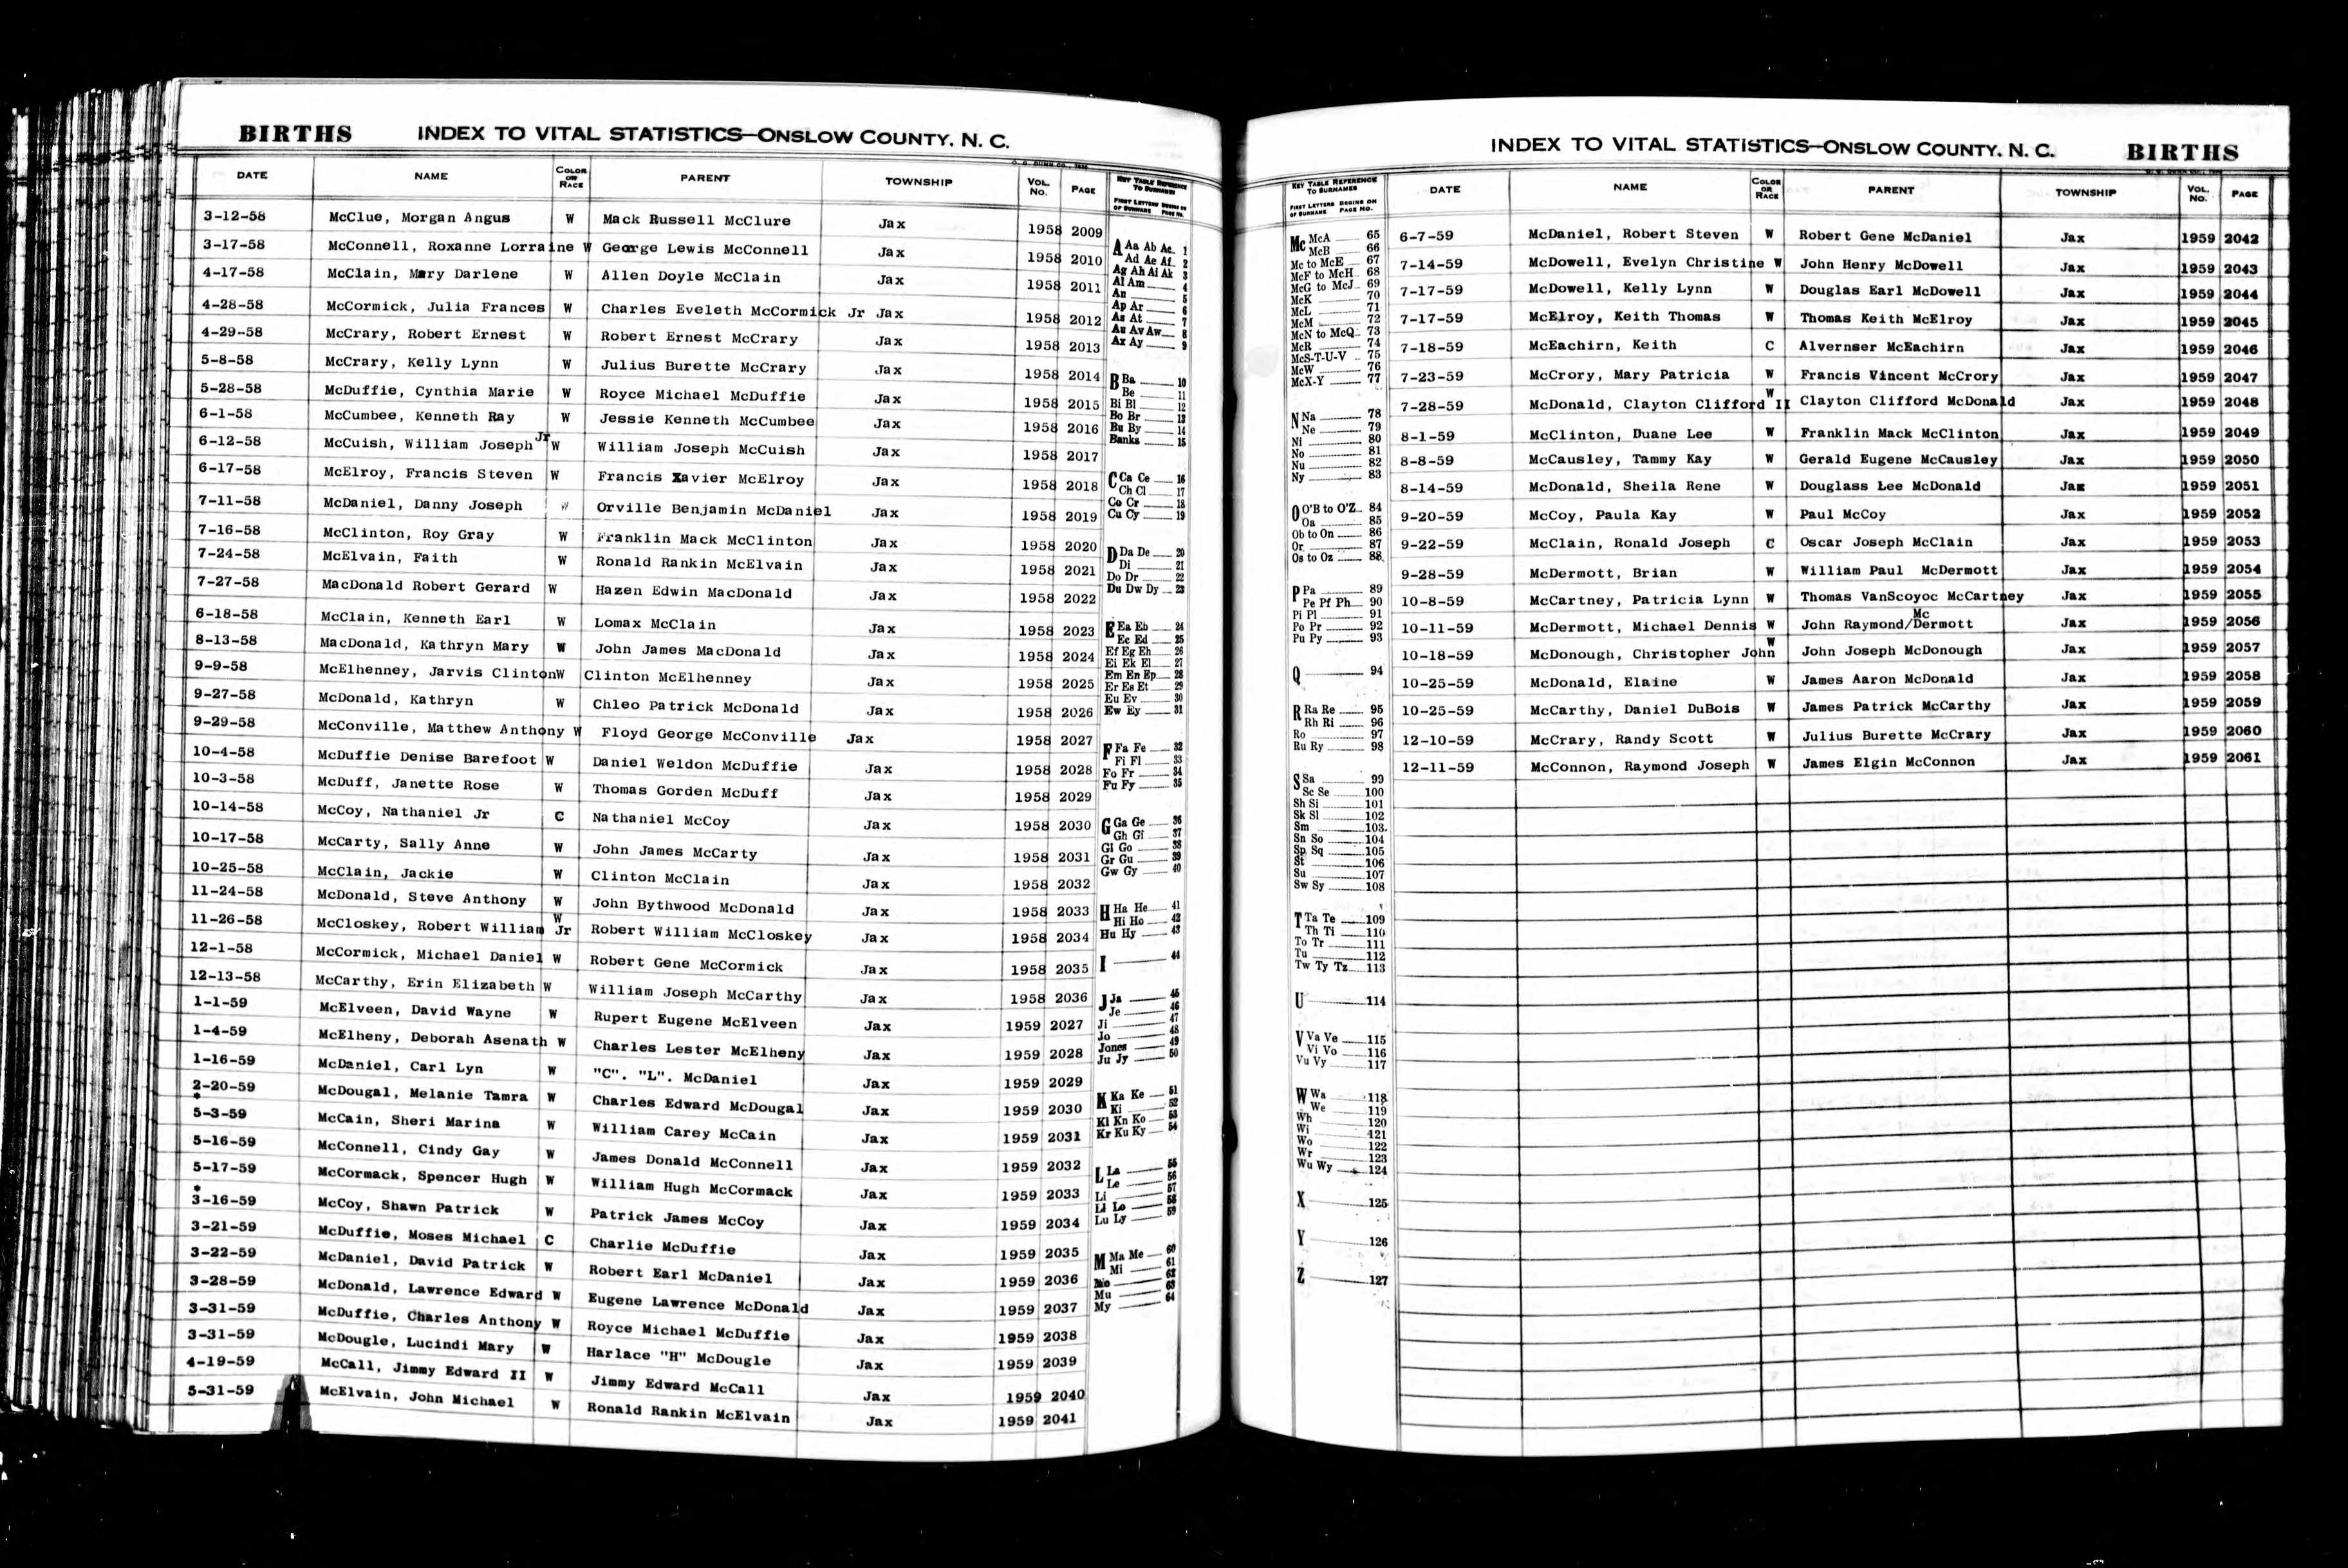 BIRTHS INDEX TO VITAL STATISTICS—ONSLOW COUNTY, N. C.
DATE NAME COLOR OR RACE PARENT TOWNSHIP VOL. No. PAGE
3-12-58 McClue, Morgan Angus W Mack Russell McClure Jax 1958 2009
3-17-58 McConnell, Roxanne Lorraine W George Lewis McConnell Jax 1958 2010
4-17-58 McClain, Mary Darlene W Allen Doyle McClain Jax 1958 2011
4-28-58 McCormick, Julia Frances W Charles Eveleth McCormick Jr Jax 1958 2012
4-29-58 McCrary, Robert Ernest W Robert Ernest McCrary Jax 1958 2013
5-8-58 McCrary, Kelly Lynn W Julius Burette McCrary Jax 1958 2014
5-28-58 McDuffie, Cynthia Marie W Royce Michael McDuffie Jax 1958 2015
6-1-58 McCumbee, Kenneth Ray W Jessie Kenneth McCumbee Jax 1958 2016
6-12-58 McCuish, William Joseph Jr W William Joseph McCuish Jax 1958 2017
6-17-58 McElroy, Francis Steven W Francis Xavier McElroy Jax 1958 2018
7-11-58 McDaniel, Danny Joseph W Orville Benjamin McDaniel Jax 1958 2019
7-16-58 McClinton, Roy Gray W Franklin Mack McClinton Jax 1958 2020
7-24-58 McElvain, Faith W Ronald Rankin McElvain Jax 1958 2021
7-27-58 MacDonald Robert Gerard W Hazen Edwin MacDonald Jax 1958 2022
6-18-58 McClain, Kenneth Earl W Lomax McClain Jax 1958 2023
8-13-58 MacDonald, Kathryn Mary W John James MacDonald Jax 1958 2024
9-9-58 McElhenney, Jarvis Clinton W Clinton McElhenney Jax 1958 2025
9-27-58 McDonald, Kathryn W Chleo Patrick McDonald Jax 1958 2026
9-29-58 McConville, Matthew Anthony W Floyd George McConville Jax 1958 2027
10-4-58 McDuffie Denise Barefoot W Daniel Weldon McDuffie Jax 1958 2028
10-3-58 McDuff, Janette Rose W Thomas Gorden McDuff Jax 1958 2029
10-14-58 McCoy, Nathaniel Jr C Nathaniel McCoy Jax 1958 2030
10-17-58 McCarty, Sally Anne W John James McCarty Jax 1958 2031
10-25-58 McClain, Jackie W Clinton McClain Jax 1958 2032
11-24-58 McDonald, Steve Anthony W John Bythwood McDonald Jax 1958 2033
11-26-58 McCloskey, Robert William Jr W Robert William McCloskey Jax 1958 2034
12-1-58 McCormick, Michael Daniel W Robert Gene McCormick Jax 1958 2035
12-13-58 McCarthy, Erin Elizabeth W William Joseph McCarthy Jax 1958 2036
1-1-59 McElveen, David Wayne W Rupert Eugene McElveen Jax 1959 2027
1-4-59 McElheny, Deborah Asenath W Charles Lester McElheny Jax 1959 2028
1-16-59 McDaniel, Carl Lyn W "C". "L". McDaniel Jax 1959 2029
2-20-59 McDougal, Melanie Tamra W Charles Edward McDougal Jax 1959 2030
* 5-3-59 McCain, Sheri Marina W William Carey McCain Jax 1959 2031
5-16-59 McConnell, Cindy Gay W James Donald McConnell Jax 1959 2032
5-17-59 McCormack, Spencer Hugh W William Hugh McCormack Jax 1959 2033
* 3-16-59 McCoy, Shawn Patrick W Patrick James McCoy Jax 1959 2034
3-21-59 McDuffie, Moses Michael C Charlie McDuffie Jax 1959 2035
3-22-59 McDaniel, David Patrick W Robert Earl McDaniel Jax 1959 2036
3-28-59 McDonald, Lawrence Edward W Eugene Lawrence McDonald Jax 1959 2037
3-31-59 McDuffie, Charles Anthony W Royce Michael McDuffie Jax 1959 2038
3-31-59 McDougle, Lucindi Mary W Harlace "H" McDougle Jax 1959 2039
4-19-59 McCall, Jimmy Edward II W Jimmy Edward McCall Jax 1959 2040
5-31-59 McElvain, John Michael W Ronald Rankin McElvain Jax 1959 2041
KEY TABLE REFERENCE TO SURNAMES
FIRST LETTERS OF SURNAME BEGINS ON PAGE NO.
A Aa Ab Ac 1
Ad Ae Af 2
Ag Ah Ai Ak 3
Al Am 4
An 5
Ap Ar 6
As At 7
Au Av Aw 8
Ax Ay 9
B Ba 10
Be 11
Bi Bl 12
Bo Br 13
Bu By 14
Banks 15
C Ca Ce 16
Ch Cl 17
Co Cr 18
Cu Cy 19
D Da De 20
Di 21
Do Dr 22
Du Dw Dy 23
E Ea Eb 24
Ec Ed 25
Ef Eg Eh 26
Ei Ek El 27
Em En Ep 28
Er Es Et 29
Eu Ev 30
Ew Ey 31
F Fa Fe 32
Fi Fl 33
Fo Fr 34
Fu Fy 35
G Ga Ge 36
Gh Gi 37
Gl Go 38
Gr Gu 39
Gw Gy 40
H Ha He 41
Hi Ho 42
Hu Hy 43
I 44
J Ja 45
Je 46
Ji 47
Jo 48
Jones 49
Ju Jy 50
K Ka Ke 51
Ki 52
Kl Kn Ko 53
Kr Ku Ky 54
L La 55
Le 56
Li 57
Ll Lo 58
Lu Ly 59
M Ma Me 60
Mi 61
Mo 62
Mu 63
My 64
INDEX TO VITAL STATISTICS—ONSLOW COUNTY, N. C. BIRTHS
KEY TABLE REFERENCE TO SURNAMES
FIRST LETTERS OF SURNAME BEGINS ON PAGE NO.
Mc McA 65
McB 66
Mc to McE 67
McF to McH 68
McG to McJ 69
McK 70
McL 71
McM 72
McN to McQ 73
McR 74
McS-T-U-V 75
McW 76
McX-Y 77
N Na 78
Ne 79
Ni 80
No 81
Nu 82
Ny 83
O O'B to O'Z 84
Oa 85
Ob to On 86
Or 87
Os to Oz 88
P Pa 89
Pe Pf Ph 90
Pi Pl 91
Po Pr 92
Pu Py 93
Q 94
R Ra Re 95
Rh Ri 96
Ro 97
Ru Ry 98
S Sa 99
Sc Se 100
Sh Si 101
Sk Sl 102
Sm 103
Sn So 104
Sp Sq 105
St 106
Su 107
Sw Sy 108
T Ta Te 109
Th Ti 110
To Tr 111
Tu 112
Tw Ty Tz 113
U 114
V Va Ve 115
Vi Vo 116
Vu Vy 117
W Wa 118
We 119
Wh 120
Wi 121
Wo 122
Wr 123
Wu Wy 124
X 125
Y 126
Z 127
DATE NAME COLOR OR RACE PARENT TOWNSHIP VOL. No. PAGE
6-7-59 McDaniel, Robert Steven W Robert Gene McDaniel Jax 1959 2042
7-14-59 McDowell, Evelyn Christine W John Henry McDowell Jax 1959 2043
7-17-59 McDowell, Kelly Lynn W Douglas Earl McDowell Jax 1959 2044
7-17-59 McElroy, Keith Thomas W Thomas Keith McElroy Jax 1959 2045
7-18-59 McEachirn, Keith C Alvernser McEachirn Jax 1959 2046
7-23-59 McCrory, Mary Patricia W Francis Vincent McCrory Jax 1959 2047
7-28-59 McDonald, Clayton Clifford II W Clayton Clifford McDonald Jax 1959 2048
8-1-59 McClinton, Duane Lee W Franklin Mack McClinton Jax 1959 2049
8-8-59 McCausley, Tammy Kay W Gerald Eugene McCausley Jax 1959 2050
8-14-59 McDonald, Sheila Rene W Douglass Lee McDonald Jax 1959 2051
9-20-59 McCoy, Paula Kay W Paul McCoy Jax 1959 2052
9-22-59 McClain, Ronald Joseph C Oscar Joseph McClain Jax 1959 2053
9-28-59 McDermott, Brian W William Paul McDermott Jax 1959 2054
10-8-59 McCartney, Patricia Lynn W Thomas VanScoyoc McCartney Jax 1959 2055
10-11-59 McDermott, Michael Dennis W John Raymond/McDermott Jax 1959 2056
10-18-59 McDonough, Christopher John W John Joseph McDonough Jax 1959 2057
10-25-59 McDonald, Elaine W James Aaron McDonald Jax 1959 2058
10-25-59 McCarthy, Daniel DuBois W James Patrick McCarthy Jax 1959 2059
12-10-59 McCrary, Randy Scott W Julius Burette McCrary Jax 1959 2060
12-11-59 McConnon, Raymond Joseph W James Elgin McConnon Jax 1959 2061